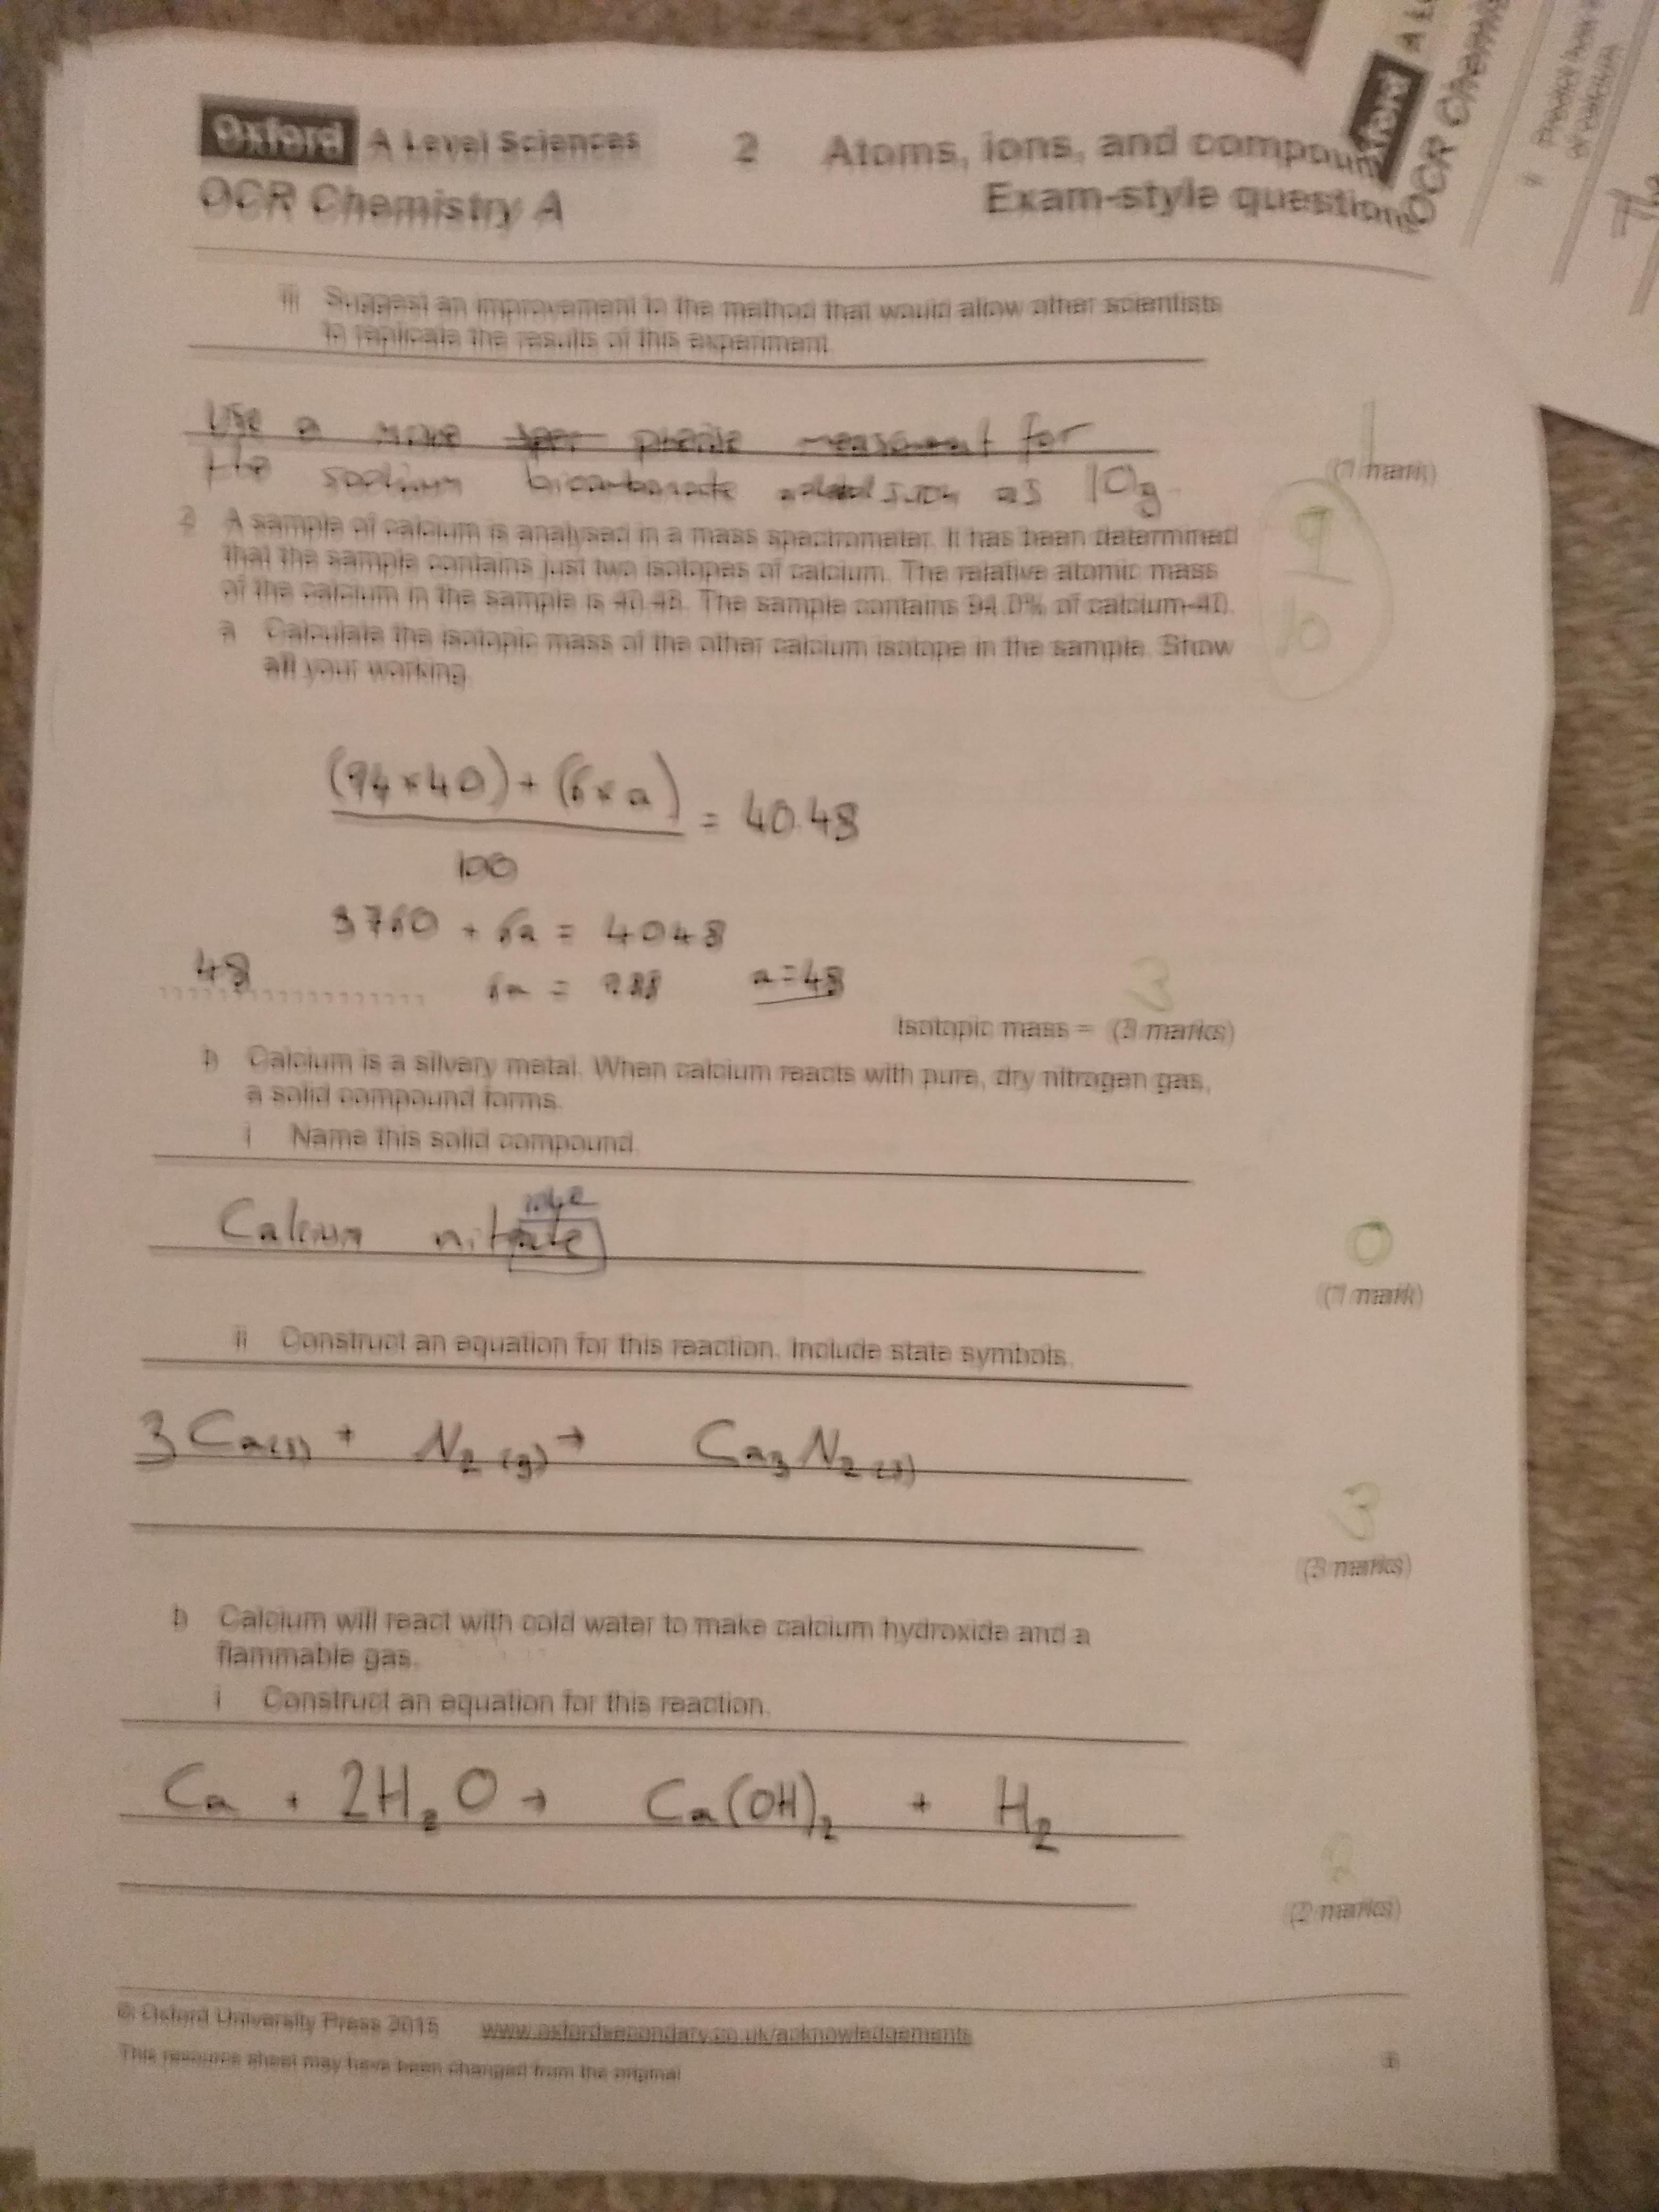 Oxford A Level Sciences
OCR Chemistry A
2 Atoms, ions, and compoun
Exam-style question
iii Suggest an improvement to the method that would allow other scientists
to replicate the results of this experiment.
Use a more for
the sodium bicarbonate added such as 10g
1
(1 mark)
2 A sample of calcium is analysed in a mass spectrometer. It has been determined
that the sample contains just two isotopes of calcium. The relative atomic mass
of the calcium in the sample is 40.48. The sample contains 94.0% of calcium-40.
9
10
a Calculate the isotopic mass of the other calcium isotope in the sample. Show
all your working.
(94×40) + (6×a)
= 40.48
100
3760 + 6a = 4048
48
6a = 288 a=48
3
Isotopic mass = (3 marks)
b Calcium is a silvery metal. When calcium reacts with pure, dry nitrogen gas,
a solid compound forms.
i Name this solid compound.
Calcium nitrate
0
(1 mark)
ii Construct an equation for this reaction. Include state symbols.
3Ca(s) + N2(g) → Ca3N2(s)
3
(3 marks)
b Calcium will react with cold water to make calcium hydroxide and a
flammable gas.
i Construct an equation for this reaction.
Ca + 2H2O → Ca(OH)2 + H2
2
(2 marks)
© Oxford University Press 2015 www.oxfordsecondary.co.uk/acknowledgements
This resource sheet may have been changed from the original
ford A Le
OCR Chemis